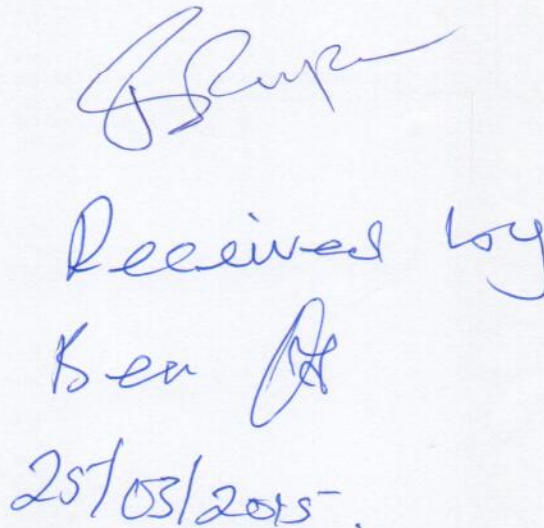 Received by
Ben
25/03/2015.